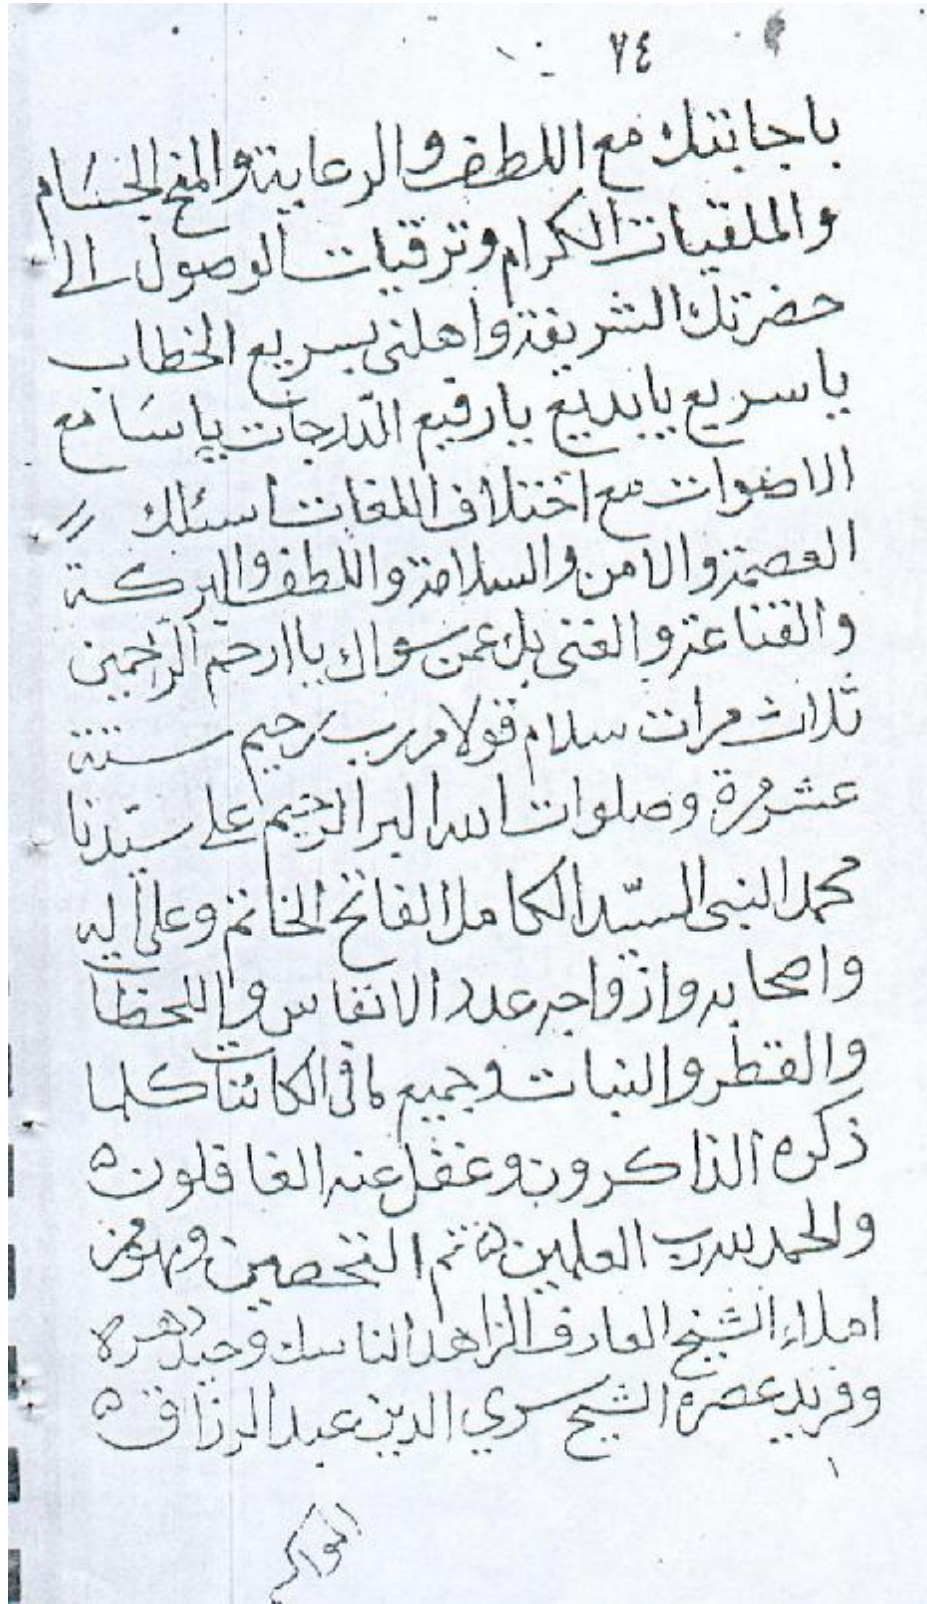 ٧٤
باجابتك مع اللطف والرعاية والمنح الجسَام
والملقيات الكرام وترقيات الوصول الى
حضرتك الشريفة واهلنى بسريع الخطاب
يا سريع يا بديع يا رفيع الدّرجات يا سَامع
الاصوات مع اختلاف اللغات اسئلك
العصمة والامن والسلامة واللطف والبركة
والقناعة والغنى بك عمن سواك يا ارحم الراحمين
ثلاث مرات سلام قولا من رب رحيم ستة
عشر مرة وصلوات الله البر الرحيم على سيّدنا
محمد النبى السيّد الكامل الفاتح الخاتم وعلى اله
واصحابه وازواجه عدد الانفاس واللحظات
والقطر والنبات وجميع ما فى الكائنات كلما
ذكره الذاكرون وغفل عنه الغافلون ه
والحمد لله رب العلمين ه تم التحصين وهو من
املاء الشيخ العارف الزاهد الناسك وحيد دهره
وفريد عصره الشيخ سري الدين عبد الرزاق ه